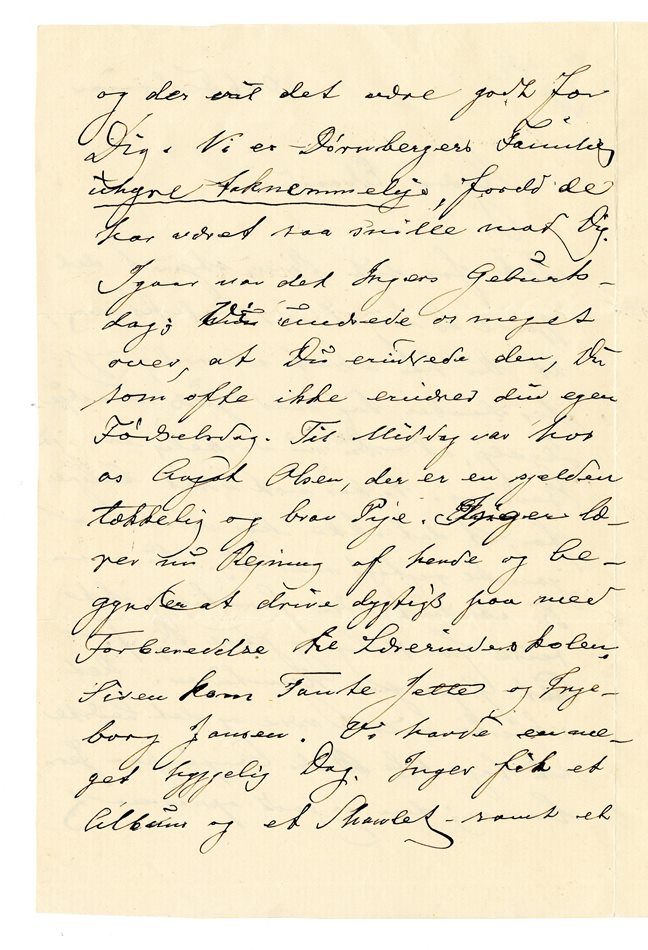 og der vil det være godt for
Dig. Vi er Dørnbergers Familie
uhyre taknemmelige, fordi de
har været saa snille mod Dig.
Igaar var det Ingers Geburts-
dag; Vi undrede os meget
over, at Du erindrede den, Du
som ofte ikke erindrer din egen
Fødselsdag. Til Middag var hos
os Olsen, der er en sjelden
tækkelig og brav Pige. Inger læ-
rer nu Regning af hende og be-
gynder at drive dygtigt paa med
Forberedelse til Lærerindeskolen.
Siden kom Tante Jette og Inge-
borg Jansen. Vi havde en me-
get hyggelig Dag. Inger fik et
Album og et Skawlet - samt et